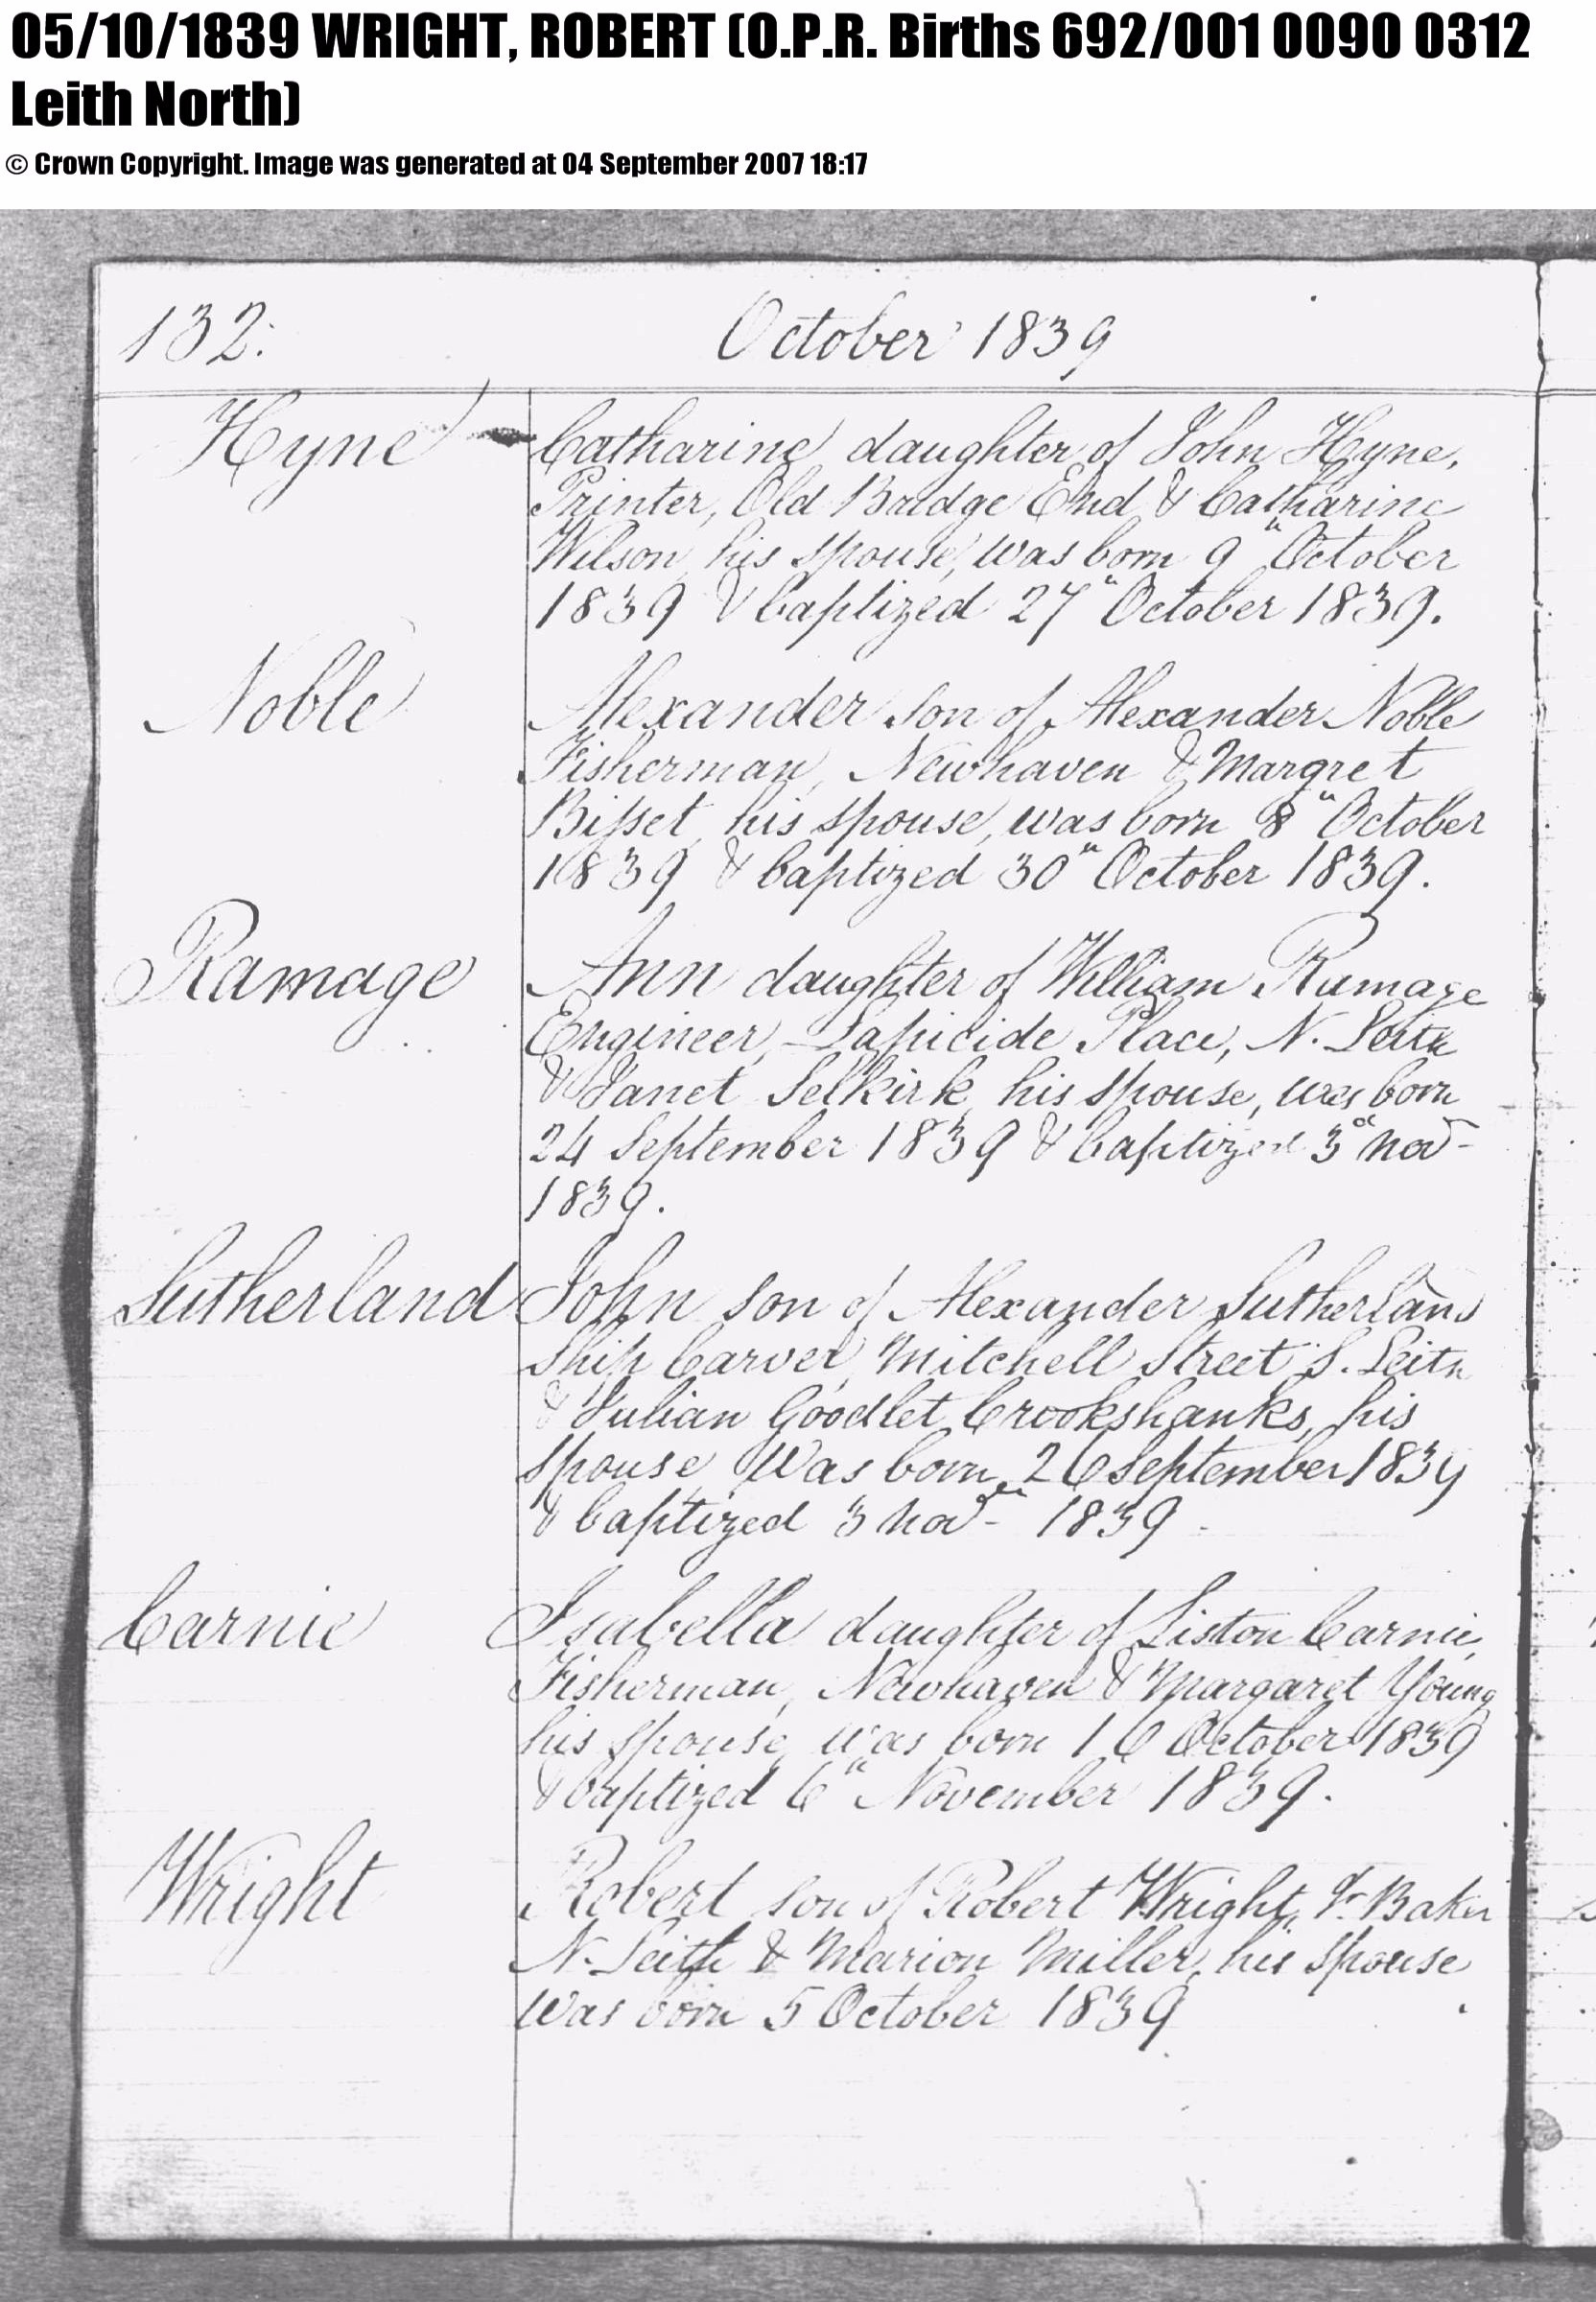 05/10/1839 WRIGHT, ROBERT (O.P.R. Births 692/001 0090 0312
Leith North)
© Crown Copyright. Image was generated at 04 September 2007 18:17
132. October 1839
Hyne Catharine daughter of John Hyne,
Printer, Old Bridge End & Catharine
Wilson, his spouse, was born 9" October
1839 & baptized 27" October 1839.
Noble Alexander son of Alexander Noble
Fisherman, Newhaven & Margret
Bisset, his spouse, was born 8" October
1839 & baptized 30" October 1839.
Ramage Ann daughter of William Ramage
Engineer, Lapicide Place, N. Leith
& Janet Selkirk, his spouse, was born
24 September 1839 & baptized 3d Nov-
1839.
Sutherland John son of Alexander Sutherland
Ship Carver, Mitchell Street, S. Leith
& Julian Goodlet Crookshanks, his
spouse Was born 26 September 1839
& baptized 3 Nov- 1839.
Carnie Isabella daughter of Liston Carnie,
Fisherman, Newhaven & Margaret Young
his spouse, was born 16 October 1839
& baptized 6" November 1839.
Wright Robert son of Robert Wright, Baker
N. Leith & Marion Miller, his spouse
was born 5 October 1839